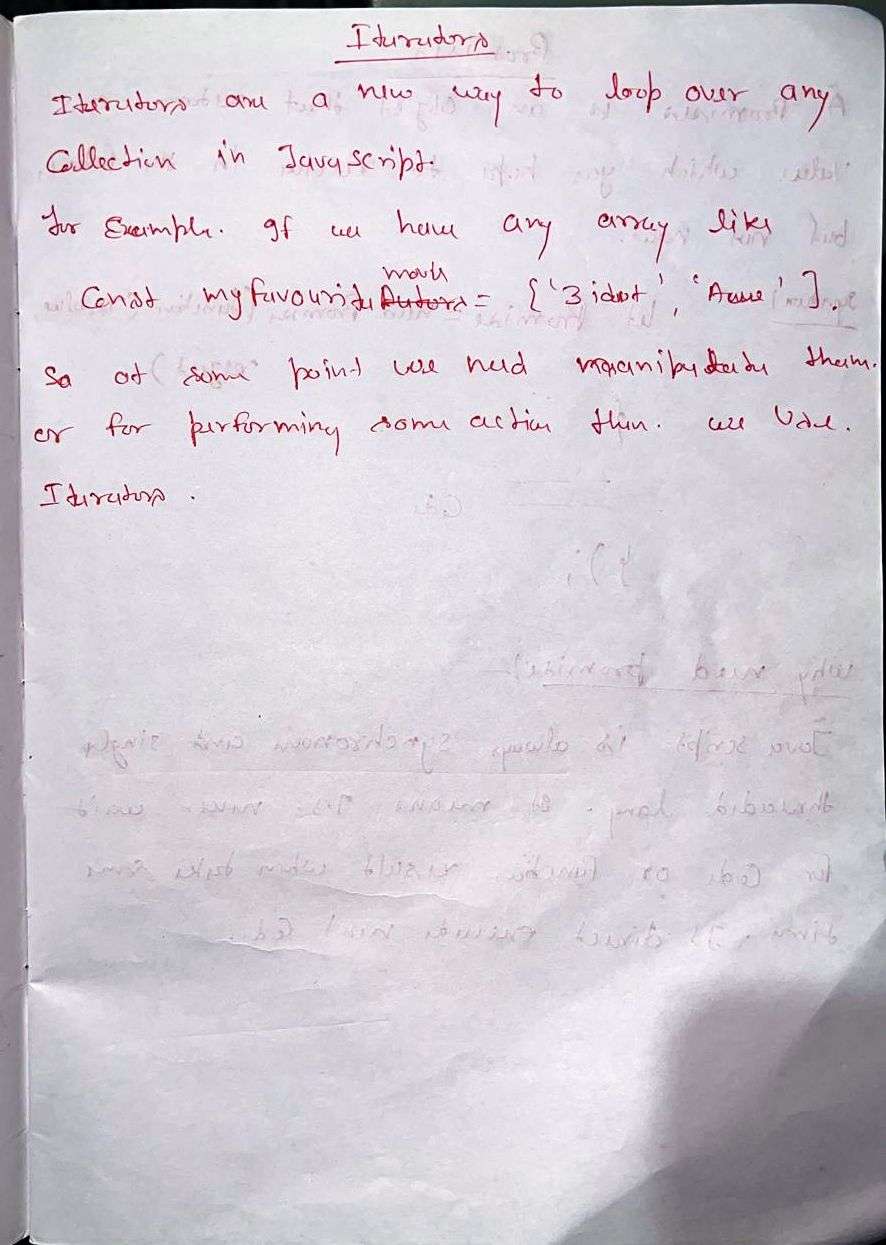 Iterators
Iterators are a new way to loop over any
Collection in JavaScript.
for Example. If we have any array like
movie
Const myfavourite Autors = {'3 idot', ' '].
So at some point we need manipulate them.
or for performing some action then. we Use.
Iterators.